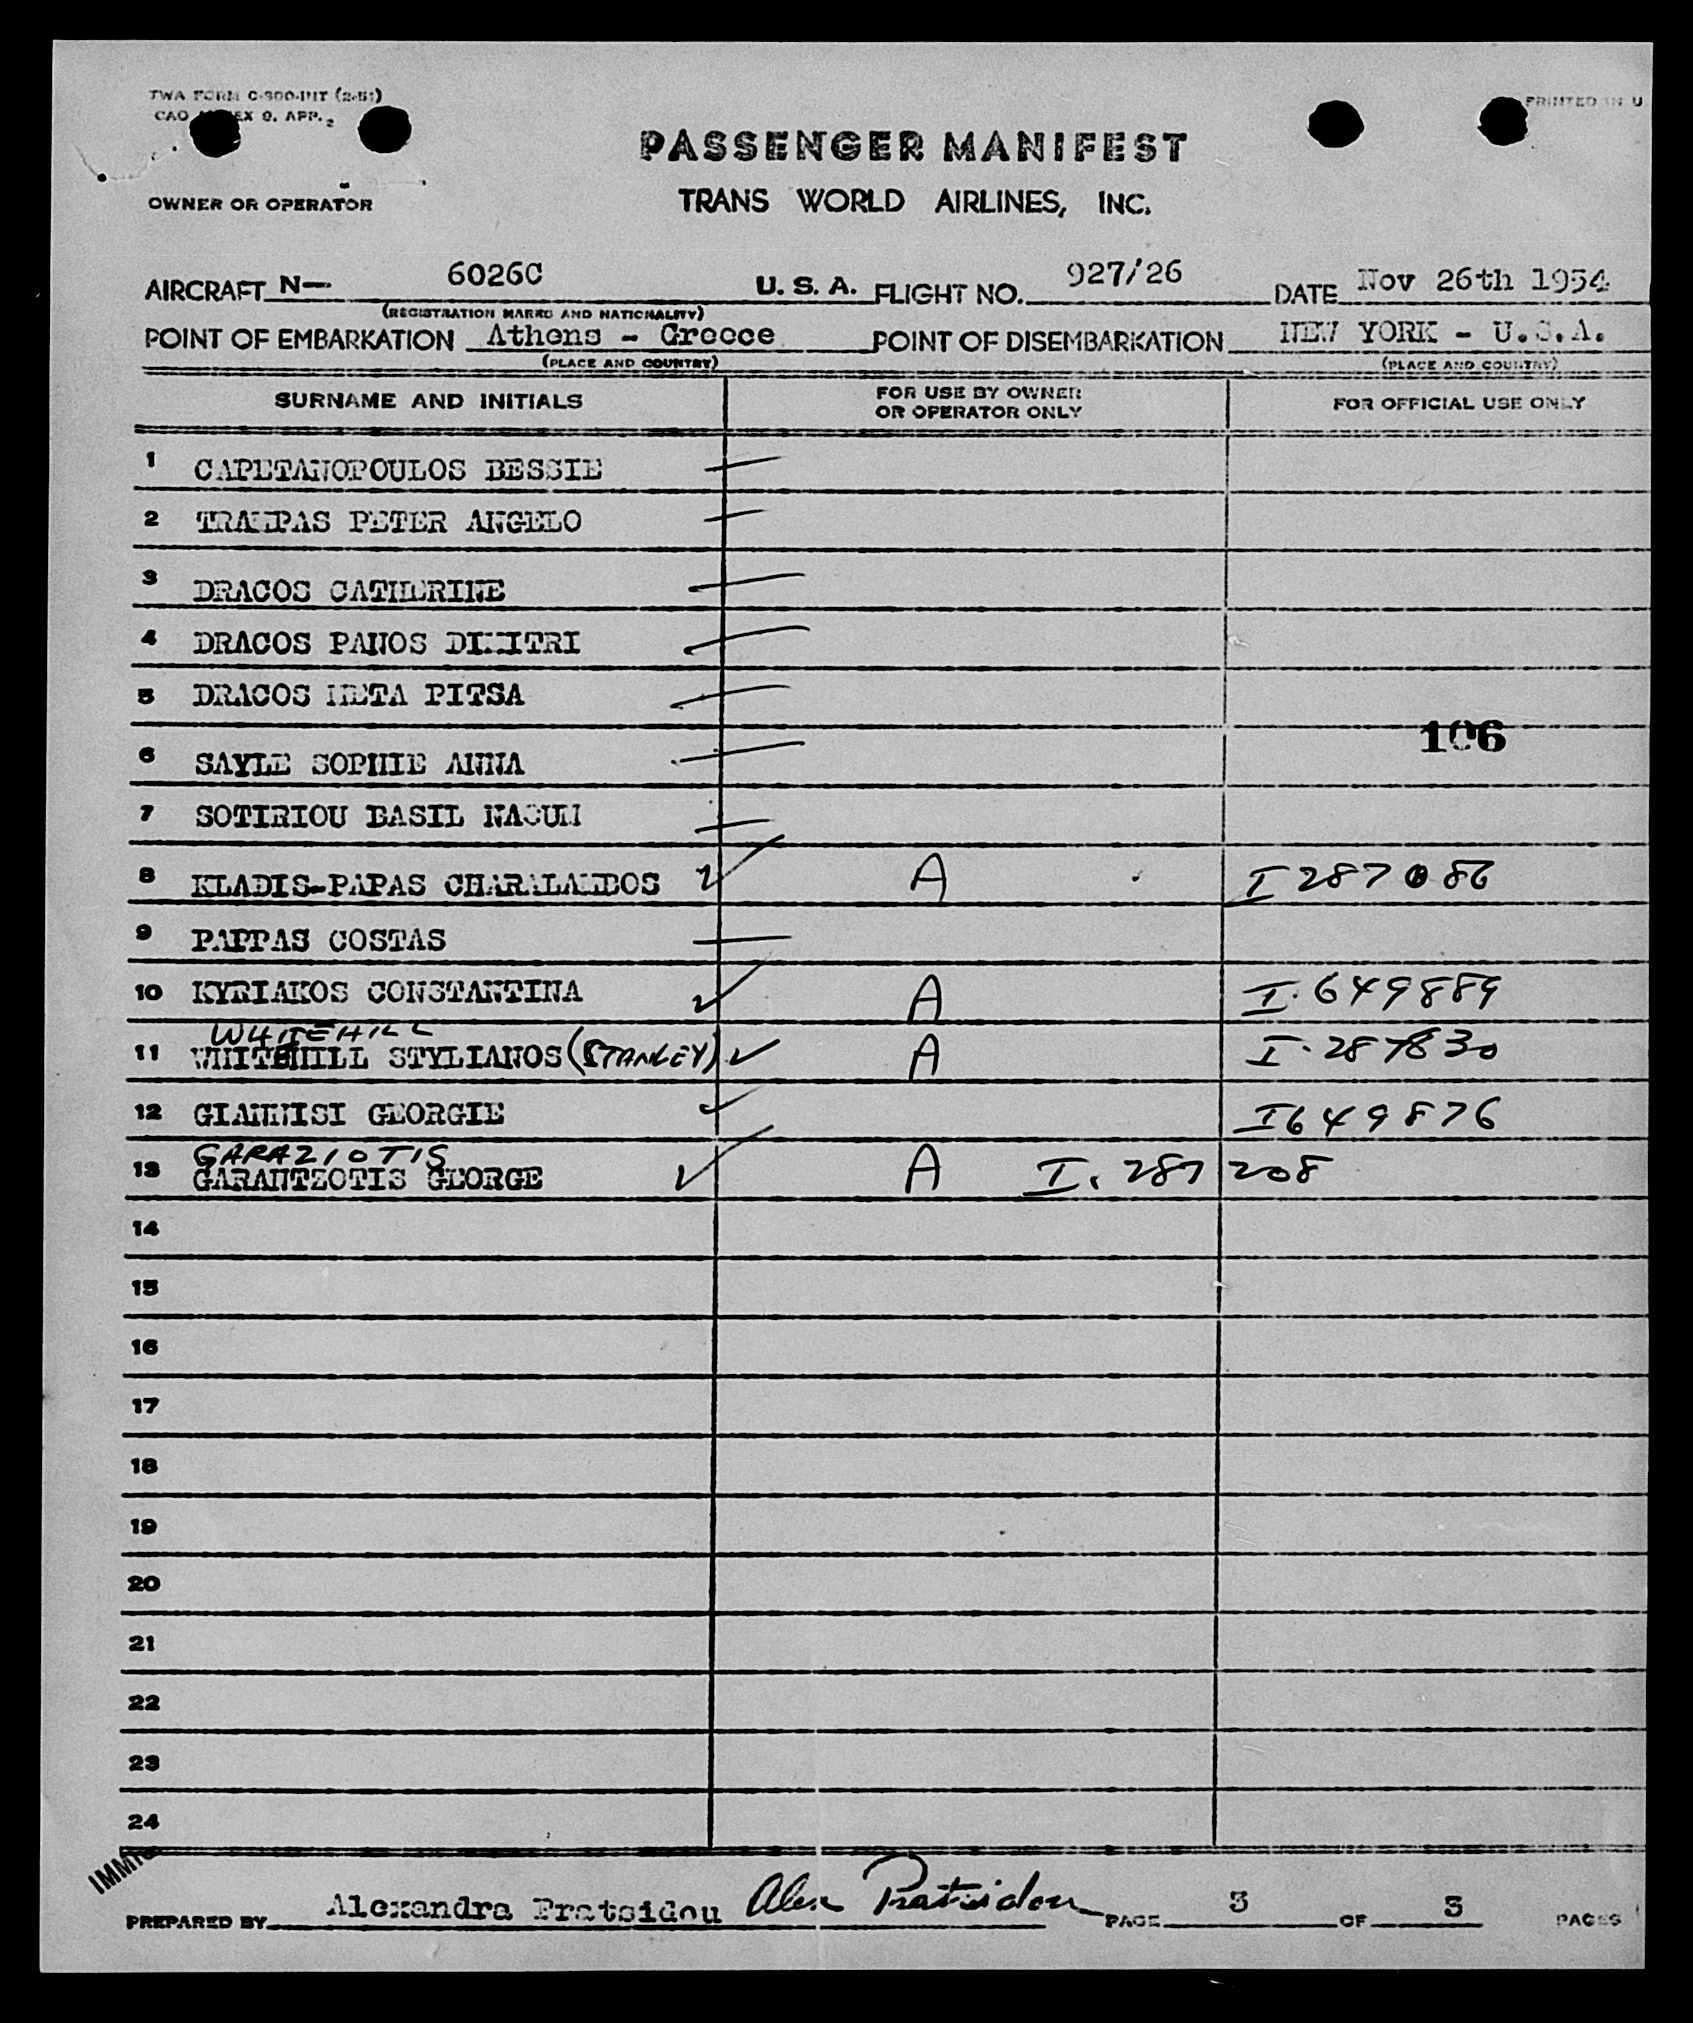 TWA FORM C-900-INT (2-51)
PRINTED IN U
CAO ANNEX 9, APP. 2
PASSENGER MANIFEST
OWNER OR OPERATOR
TRANS WORLD AIRLINES, INC.
AIRCRAFT N— 6026C U. S. A. FLIGHT NO. 927/26 DATE Nov 26th 1954
(REGISTRATION MARKS AND NATIONALITY)
POINT OF EMBARKATION Athens - Greece POINT OF DISEMBARKATION NEW YORK - U.S.A.
(PLACE AND COUNTRY) (PLACE AND COUNTRY)
SURNAME AND INITIALS FOR USE BY OWNER OR OPERATOR ONLY FOR OFFICIAL USE ONLY
1 CAPETANOPOULOS BESSIE
2 TRAMPAS PETER ANGELO
3 DRACOS CATHERINE
4 DRACOS PANOS DIMITRI
5 DRACOS META PITSA
106
6 SAYLE SOPHIE ANNA
7 SOTIRIOU BASIL NAOUM
8 KLADIS-PAPAS CHARALAMBOS A I 287086
9 PAPPAS COSTAS
10 KYRIAKOS CONSTANTINA A I. 649889
WHITEHILL
11 WHITEHILL STYLIANOS (STANLEY) A I. 287830
12 GIANNISI GEORGIE I 649876
GARAZIOTIS
13 GARANTZOTIS GEORGE A I. 287208
14
15
16
17
18
19
20
21
22
23
24
PREPARED BY Alexandra Pratsidou Alex Pratsidou PAGE 3 OF 3 PAGES